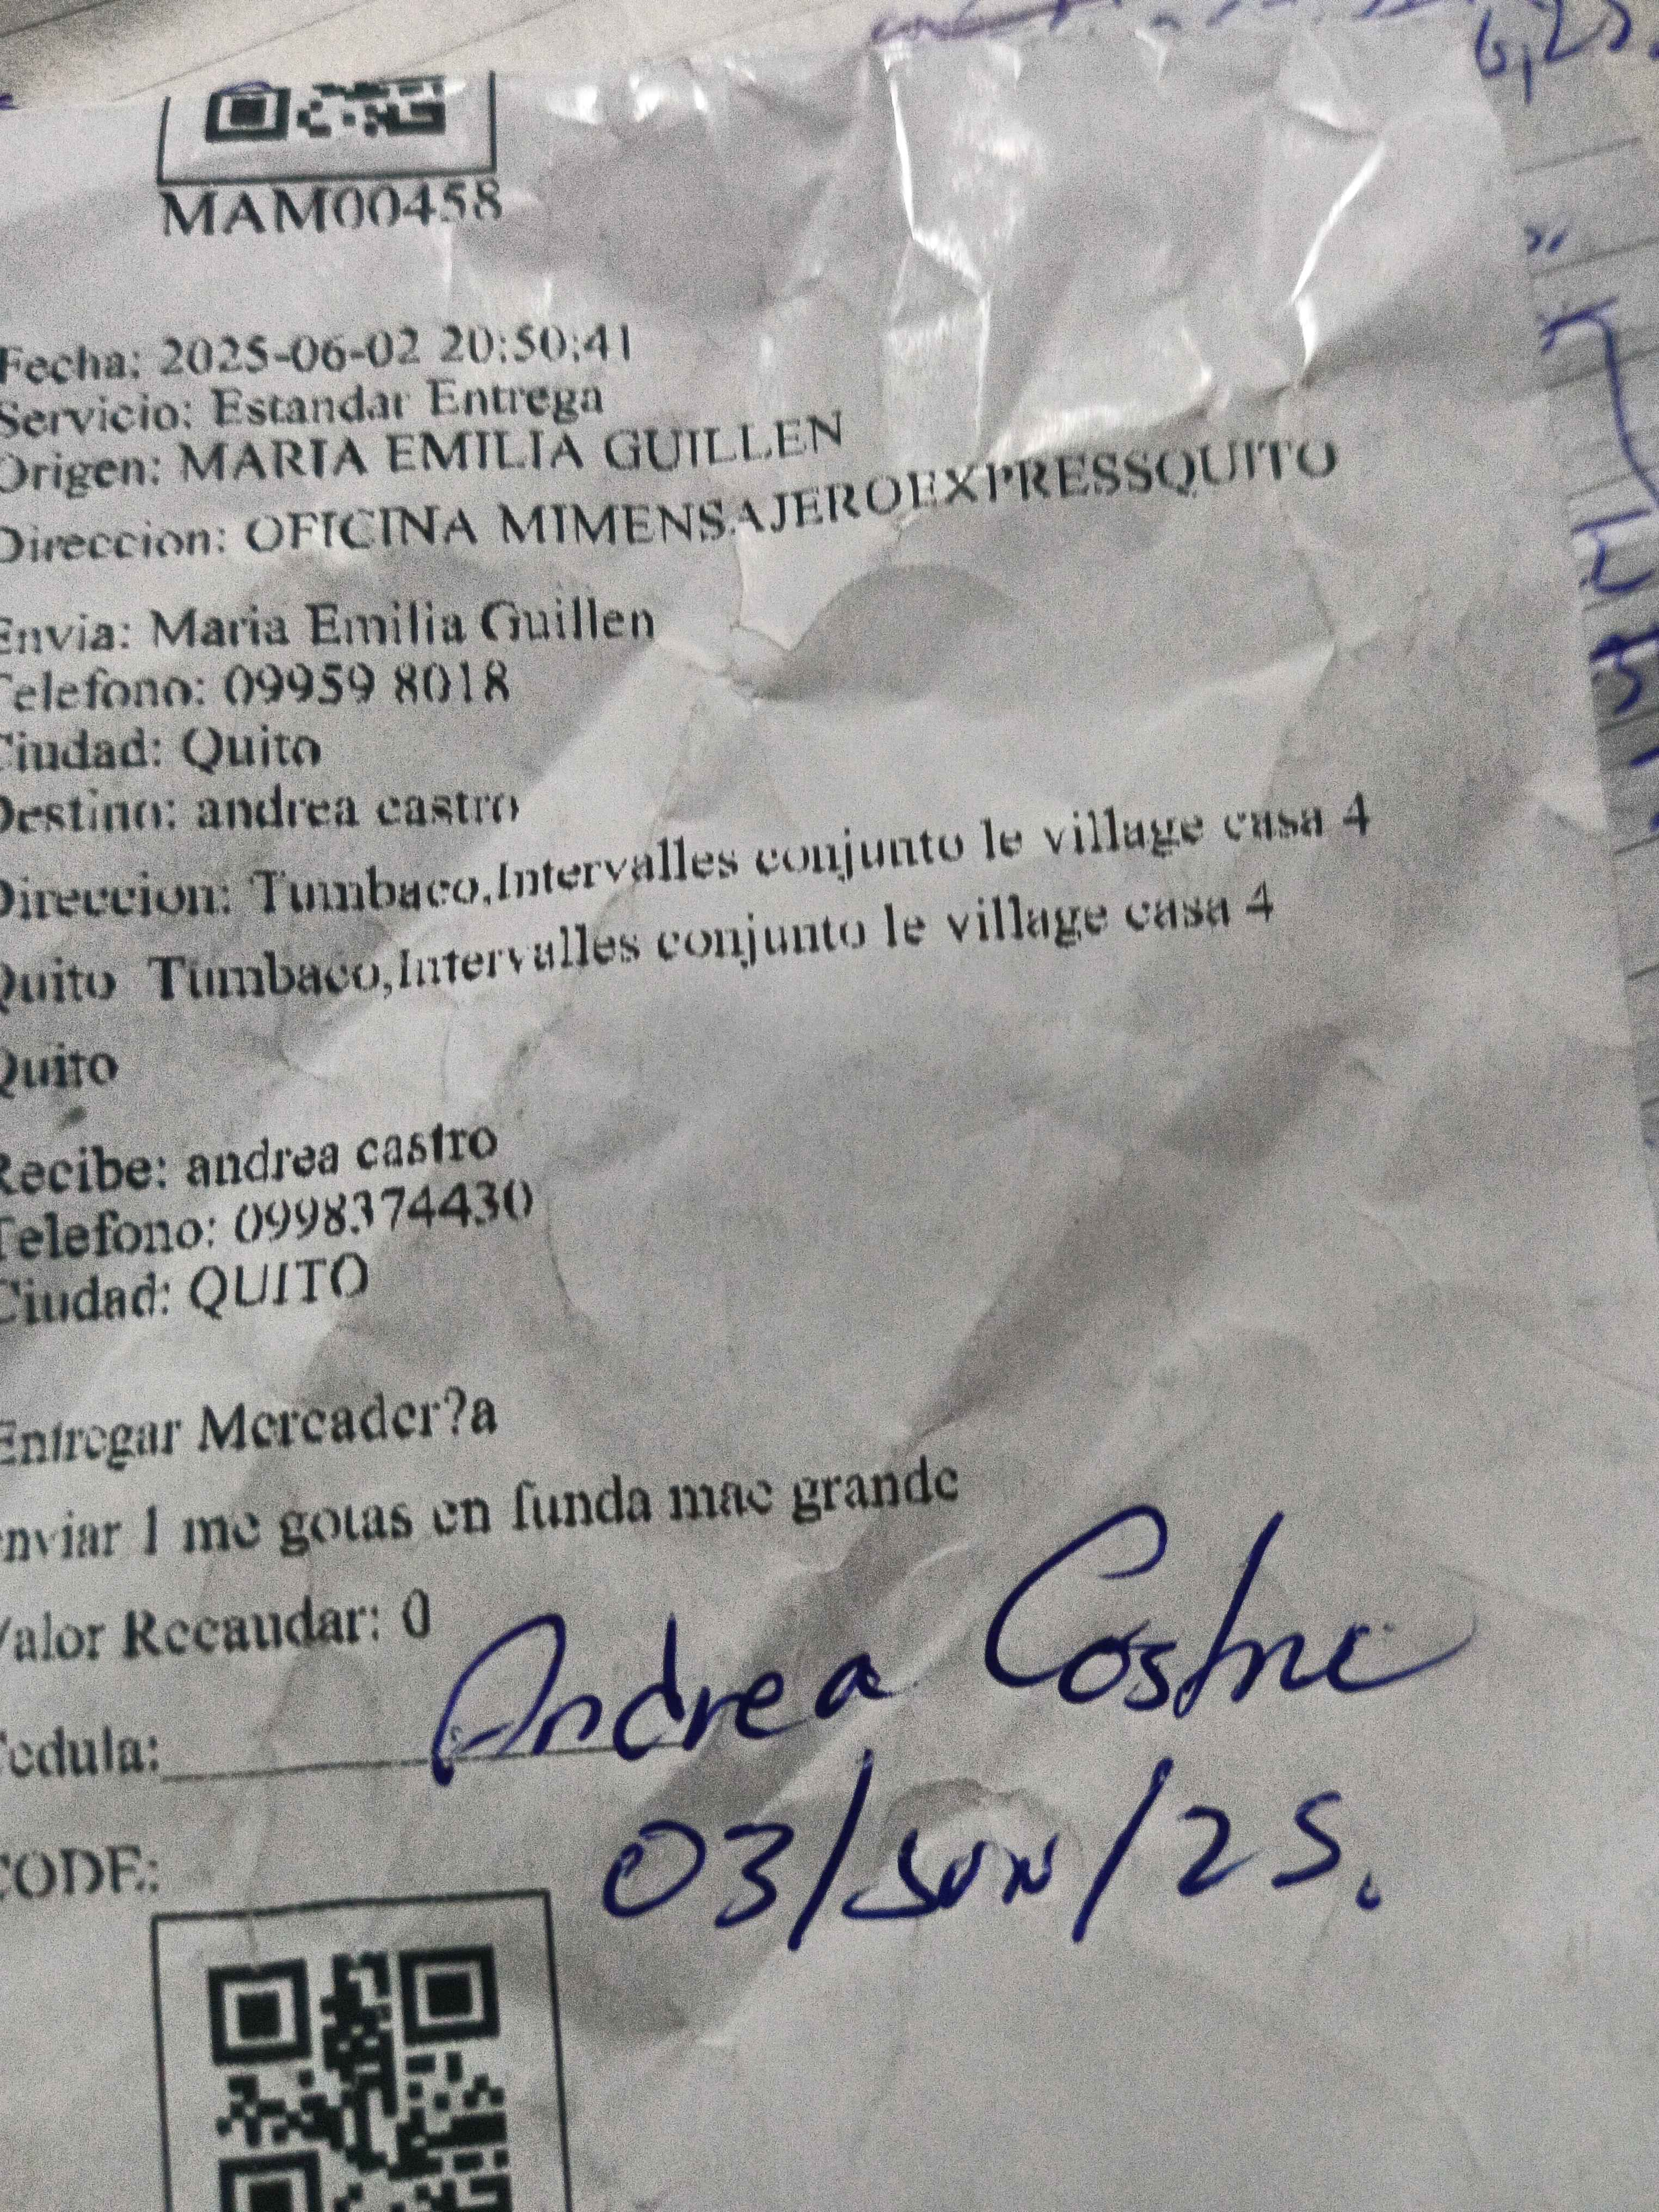 6,25.
MAM00458
Fecha: 2025-06-02 20:50:41
Servicio: Estandar Entrega
Origen: MARIA EMILIA GUILLEN
Direccion: OFICINA MIMENSAJEROEXPRESSQUITO
Envia: Maria Emilia Guillen
Telefono: 09959 8018
Ciudad: Quito
Destino: andrea castro
Direccion: Tumbaco,Intervalles conjunto le village casa 4
Quito Tumbaco,Intervalles conjunto le village casa 4
Quito
Recibe: andrea castro
Telefono: 0998374430
Ciudad: QUITO
Entregar Mercader?a
enviar 1 me gotas en funda mae grande
Valor Recaudar: 0
Cedula:
Andrea Castro
03/Jun/25.
CODE: